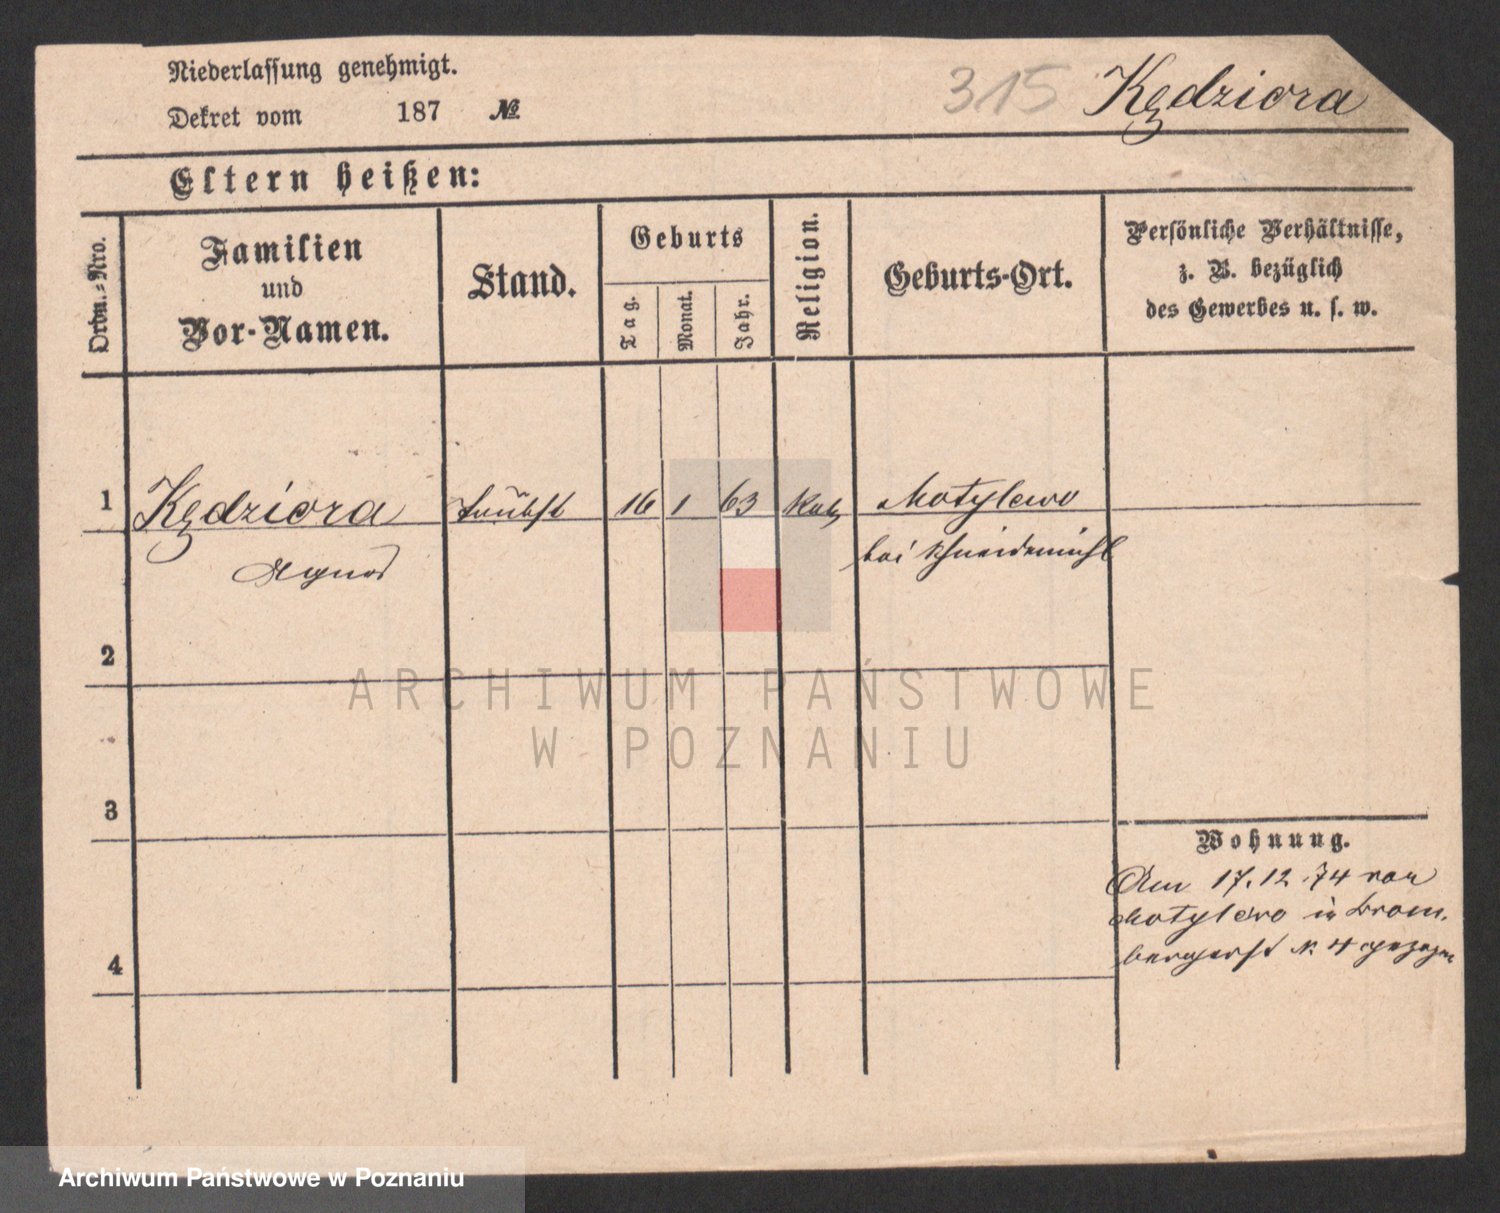 Niederlassung genehmigt.
Dekret vom 187 №
315 Kędziora
Eltern heißen:
Ordn.-Nro.
Familien
und
Vor-Namen.
Stand.
Geburts
Tag.
Monat.
Jahr.
Religion.
Geburts-Ort.
Persönliche Verhältnisse,
z. B. bezüglich
des Gewerbes u. s. w.
1 Kędziora 16 1 63 Kath Motylewo
Agnes bei Schneidemühl
2
3
4
Wohnung.
Am 17.12.74 von
Motylewo in Brom-
bergerst N. 4 gezogen
ARCHIWUM PAŃSTWOWE
W POZNANIU
Archiwum Państwowe w Poznaniu